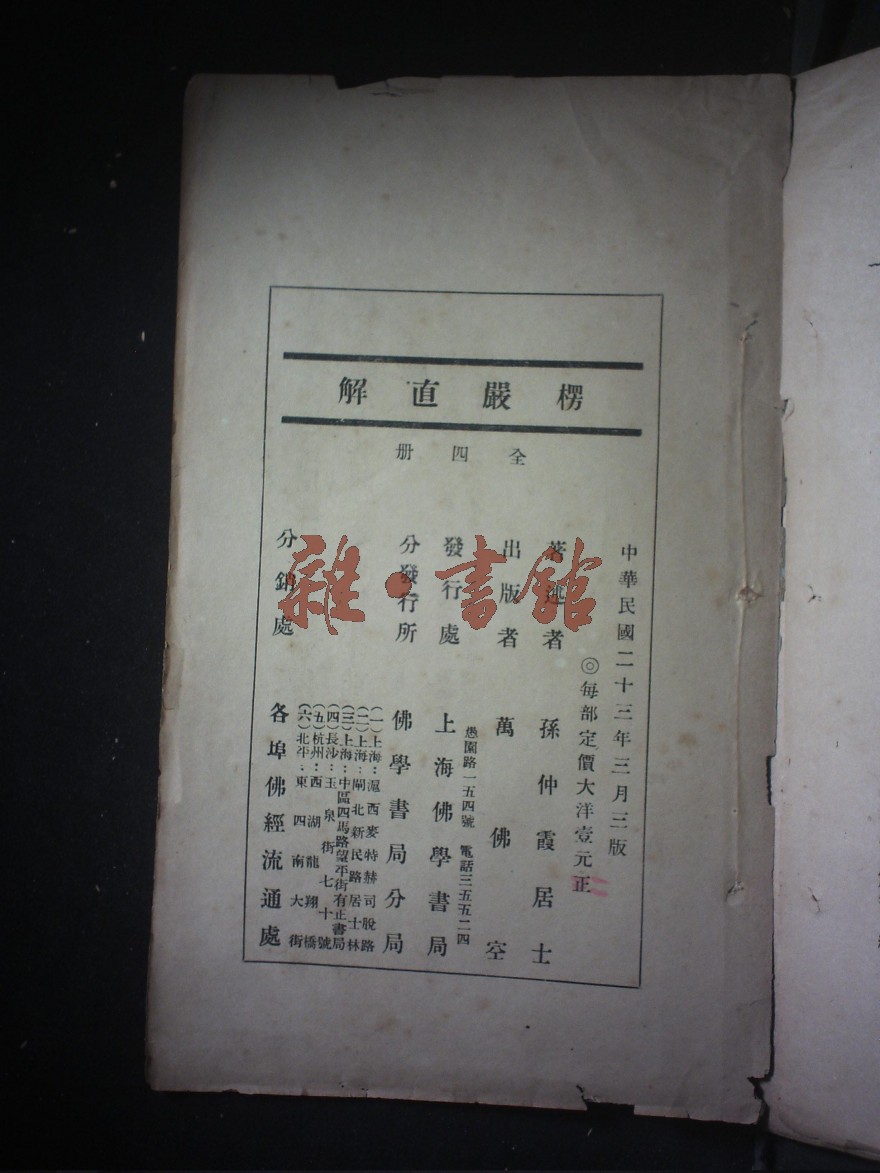 楞嚴直解
全四册
中華民國二十三年三月三版
◎每部定價大洋壹元正
著述者 孫仲霞居士
出版者 萬佛空
發行處 上海佛學書局
愚園路一五四號 電話三五五二四
分發行所 佛學書局分局
(一)上海：滬西麥特赫司脫路
(二)上海：閘北新民路居士林
(三)上海：中區四馬路望平街有正書局
(四)長沙：玉泉街七十號
(五)杭州：西湖龍翔橋
(六)北平：東四南大街
分銷處 各埠佛經流通處
雜·書館